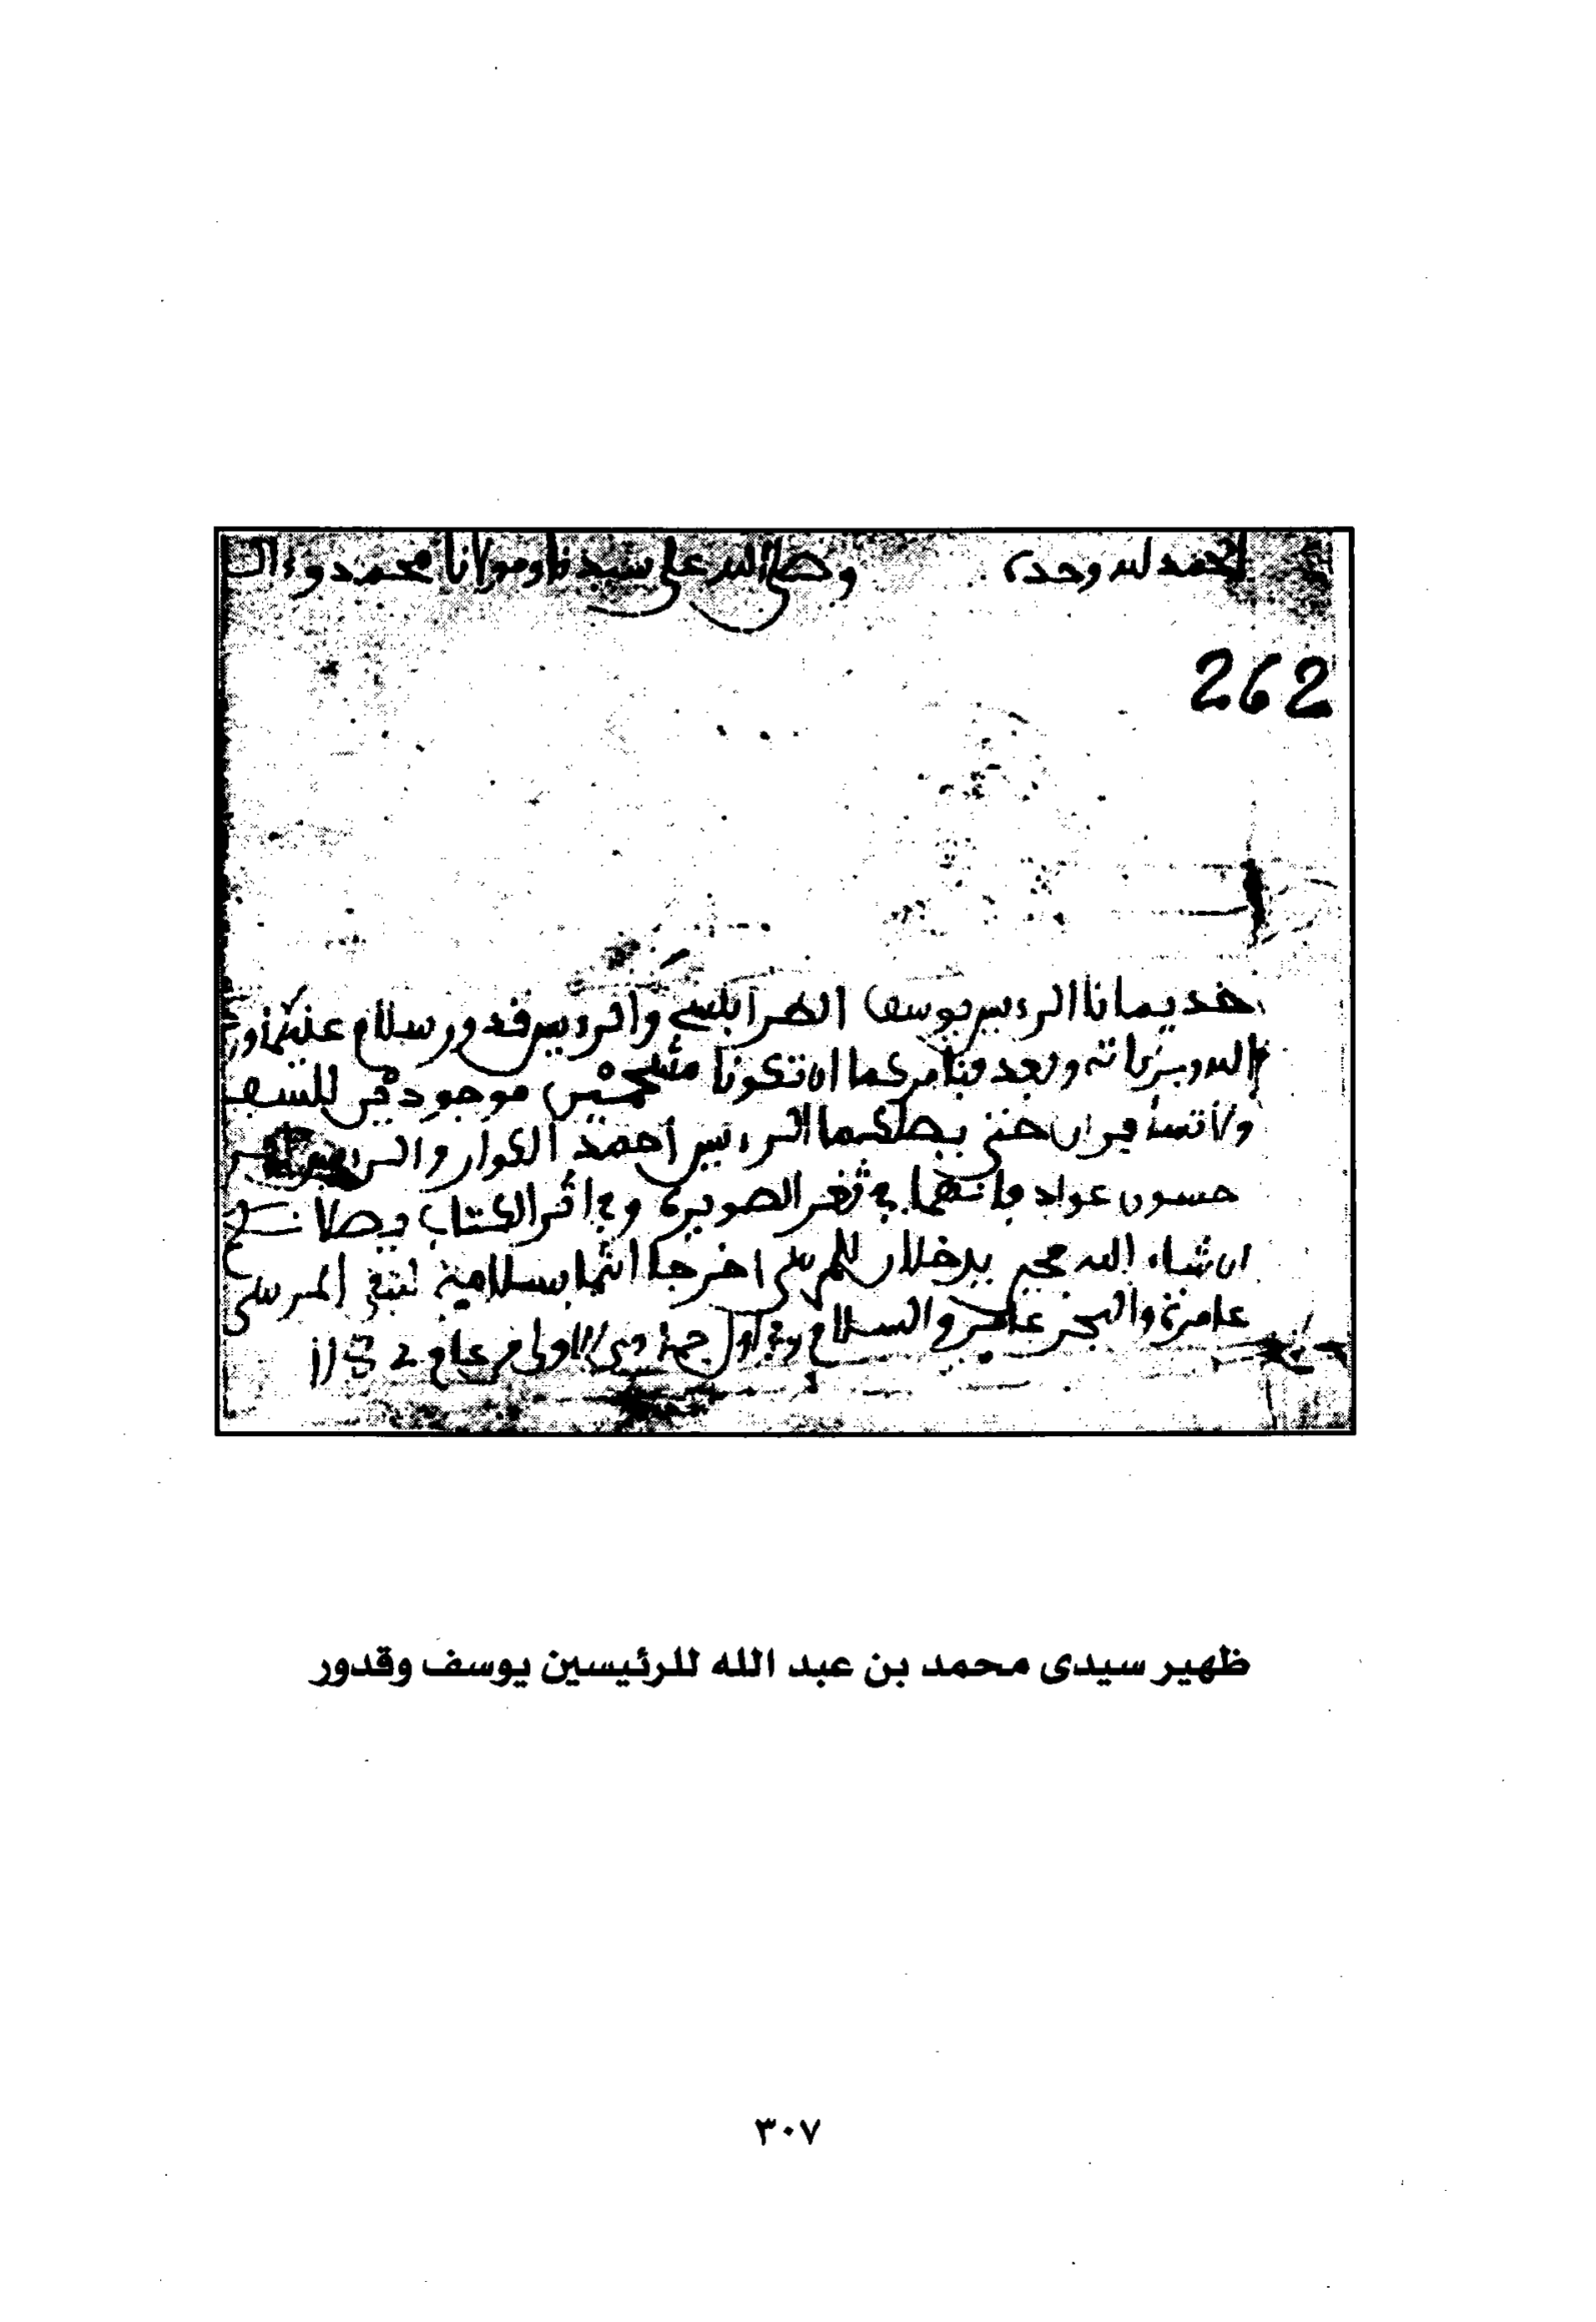 الحمد لله وحده وصلى الله على سيدنا ومولانا محمد وءاله
262
خديمانا الرءيس يوسف الطرابلسي والرءيس قدور سلام عليكما ورحمة
الله وبركاته وبعد فنامركما ان تكونا موجودين للسفر
ولا تسافران حتى يصلكما الرءيس احمد الكوار والرءيس
حسون عواد فانهما في ثغر الصويرة وفي اثر الكتاب يصلان
ان شاء الله يدخلان للمرسى اخرجا انتما بسلامة لتبقى المرسى
عامرة والبحر عامر والسلام في اول جمادى الاولى من عام
ظهير سيدى محمد بن عبد الله للرئيسين يوسف وقدور
٣٠٧